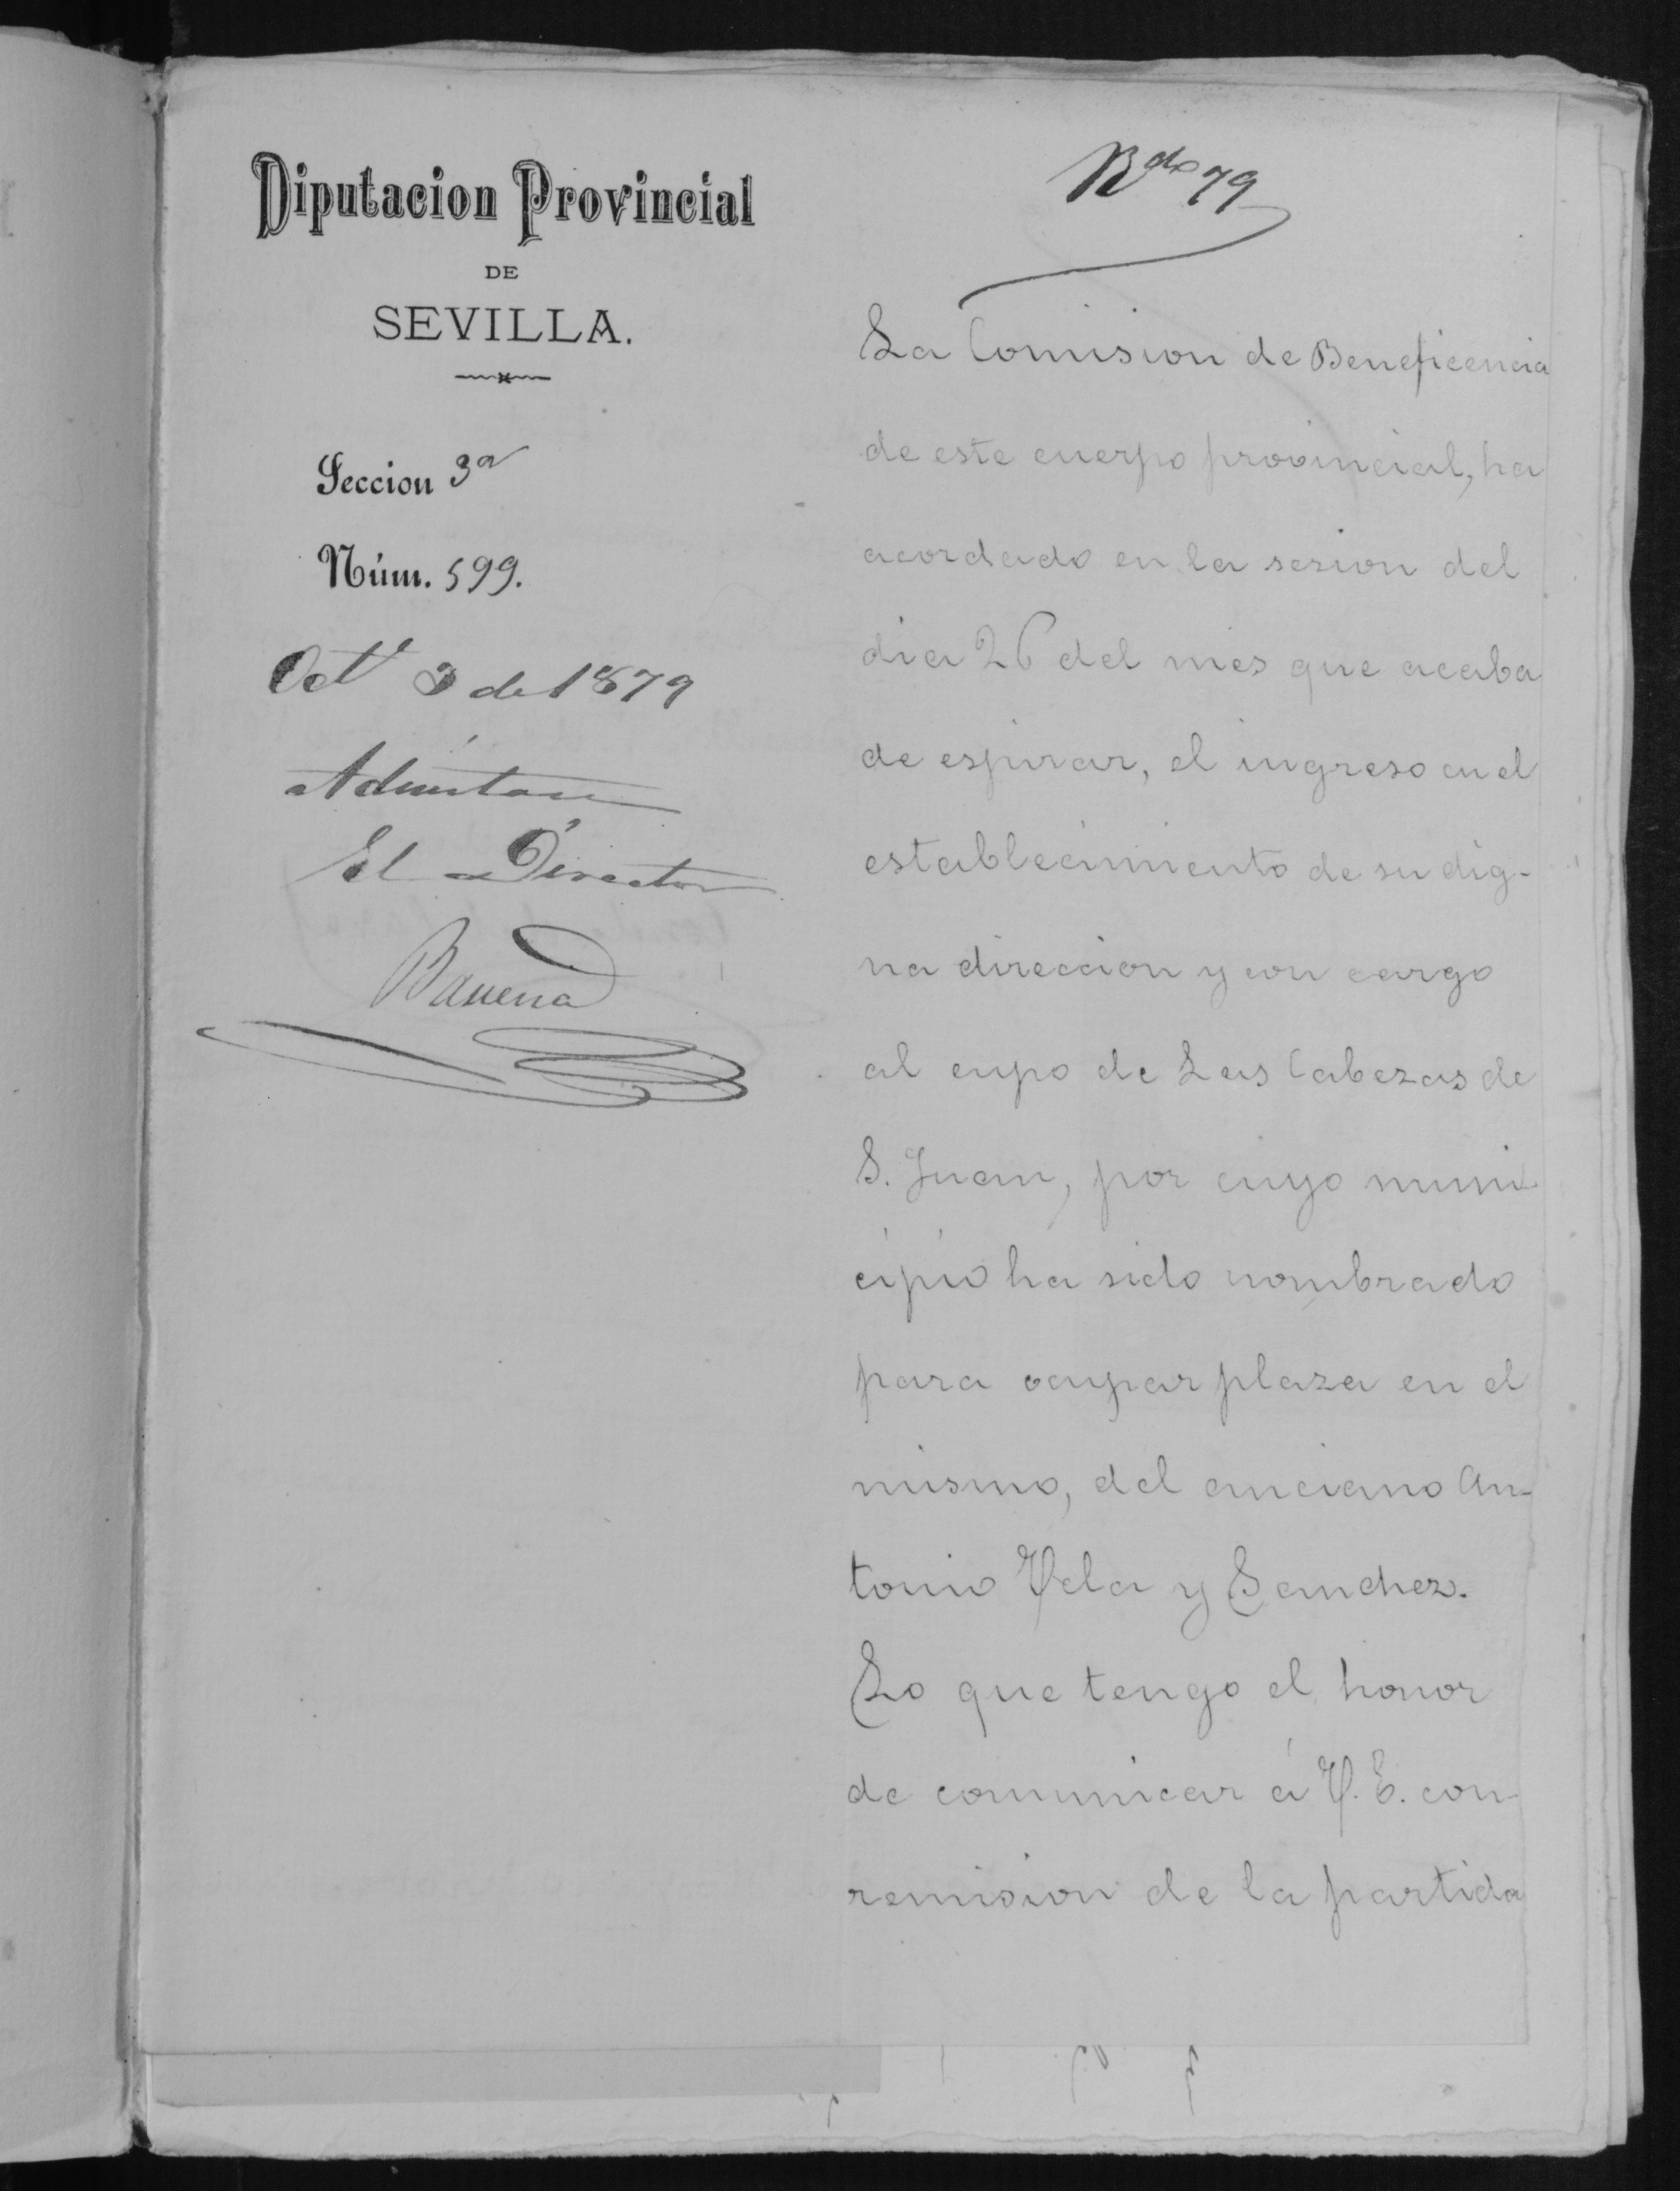 Diputacion Provincial
DE
SEVILLA.
Seccion 3ª
Núm. 599.
Oct 3 de 1879
Admítase
El Director
Bauena
Rdo 79
La Comision de Beneficencia
de este cuerpo provincial, ha
acordado en la sesion del
dia 26 del mes que acaba
de espirar, el ingreso en el
establecimiento de su dig-
na direccion y con cargo
al cupo de Las Cabezas de
S. Juan, por cuyo muni
cipio ha sido nombrado
para ocupar plaza en el
mismo, del anciano An-
tonio Vela y Sanchez.
Lo que tengo el honor
de comunicar á V. E. con
remision de la partida